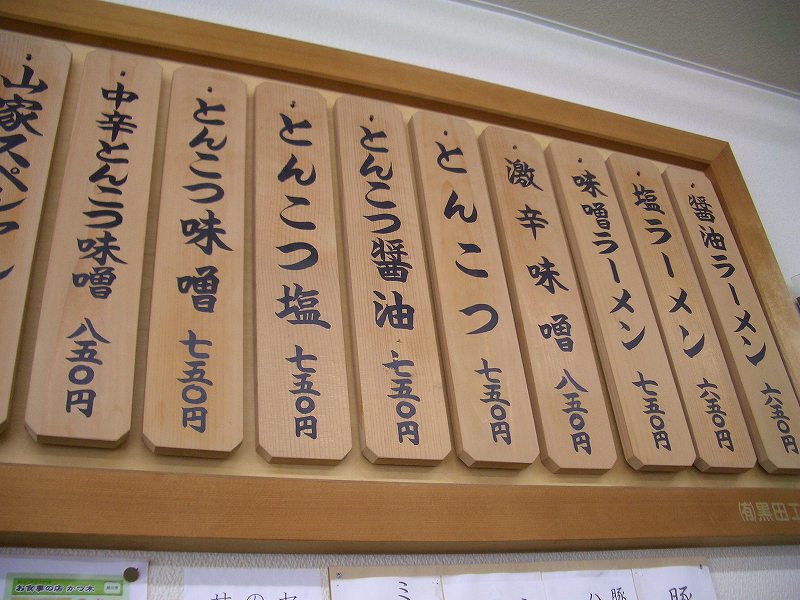 醤油ラーメン 六五〇円
塩ラーメン 六五〇円
味噌ラーメン 七五〇円
激辛味噌 八五〇円
とんこつ 七五〇円
とんこつ醤油 七五〇円
とんこつ塩 七五〇円
とんこつ味噌 七五〇円
中辛とんこつ味噌 八五〇円
山家スペシャル
㈲黒田工
お食事の店 かつ木
豚
豚